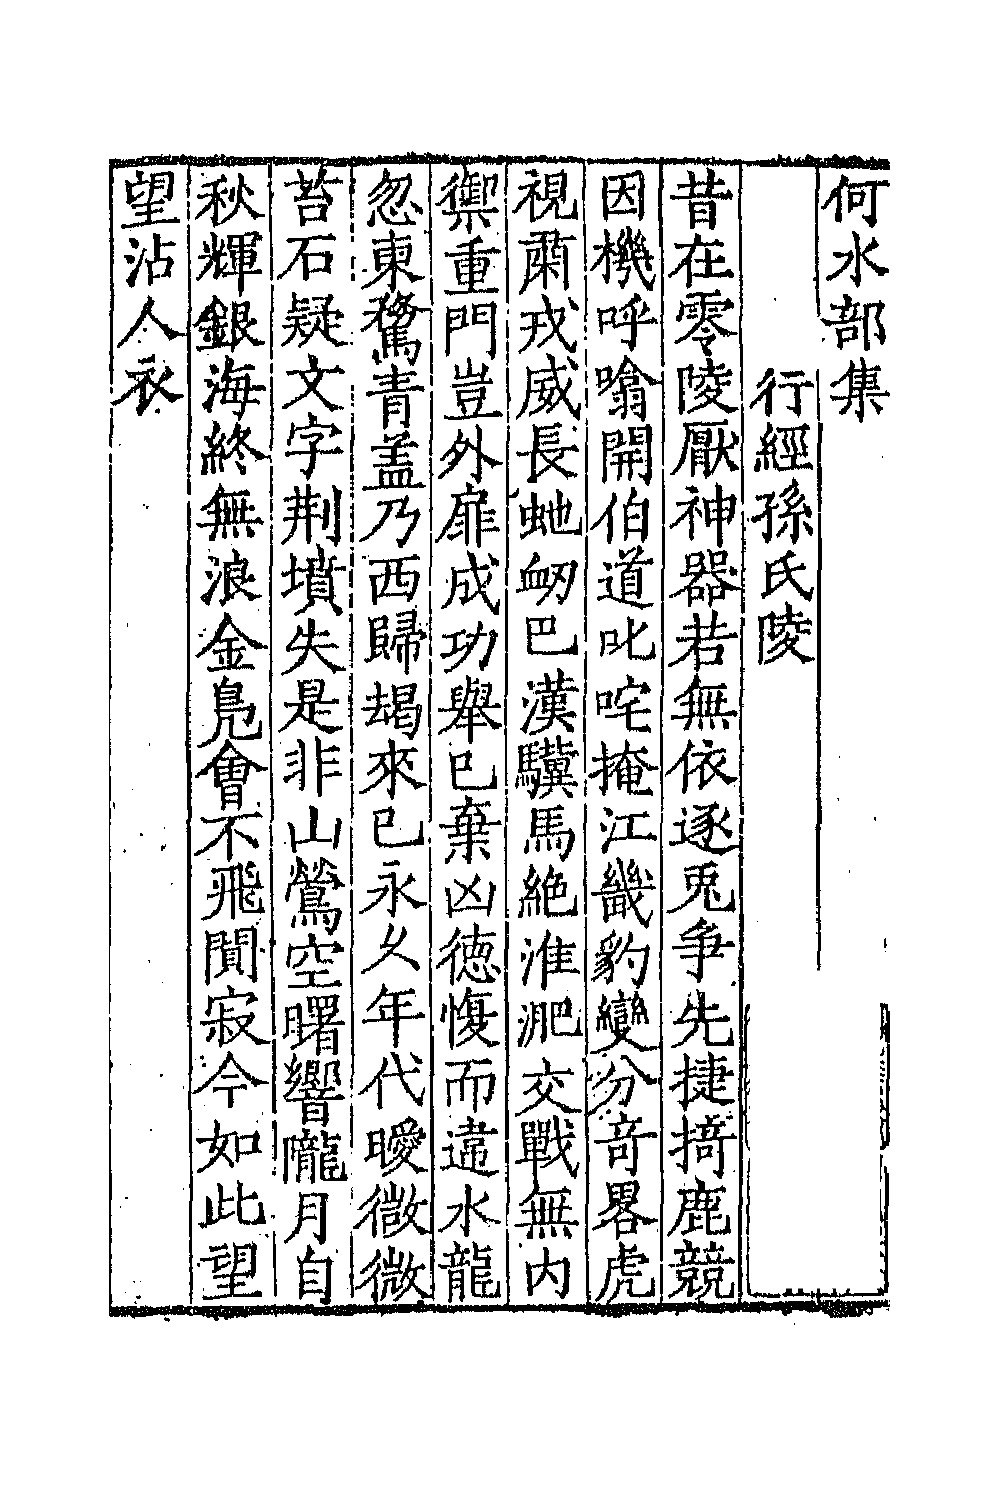 何水部集
行經孫氏陵
昔在零陵厭神器若無依逐兎争先捷掎鹿競
因機呼噏開伯道叱咤掩江畿豹變分竒畧虎
視肅戎威長虵衂巴漢驥馬絶淮淝交戰無内
禦重門豈外扉成功舉已棄凶德愎而違水龍
忽東騖青盖乃西歸朅來已永久年代曖微微
苔石疑文字荆墳失是非山鶯空曙響隴月自
秋輝銀海終無浪金鳬會不飛闃寂今如此望
望沾人衣